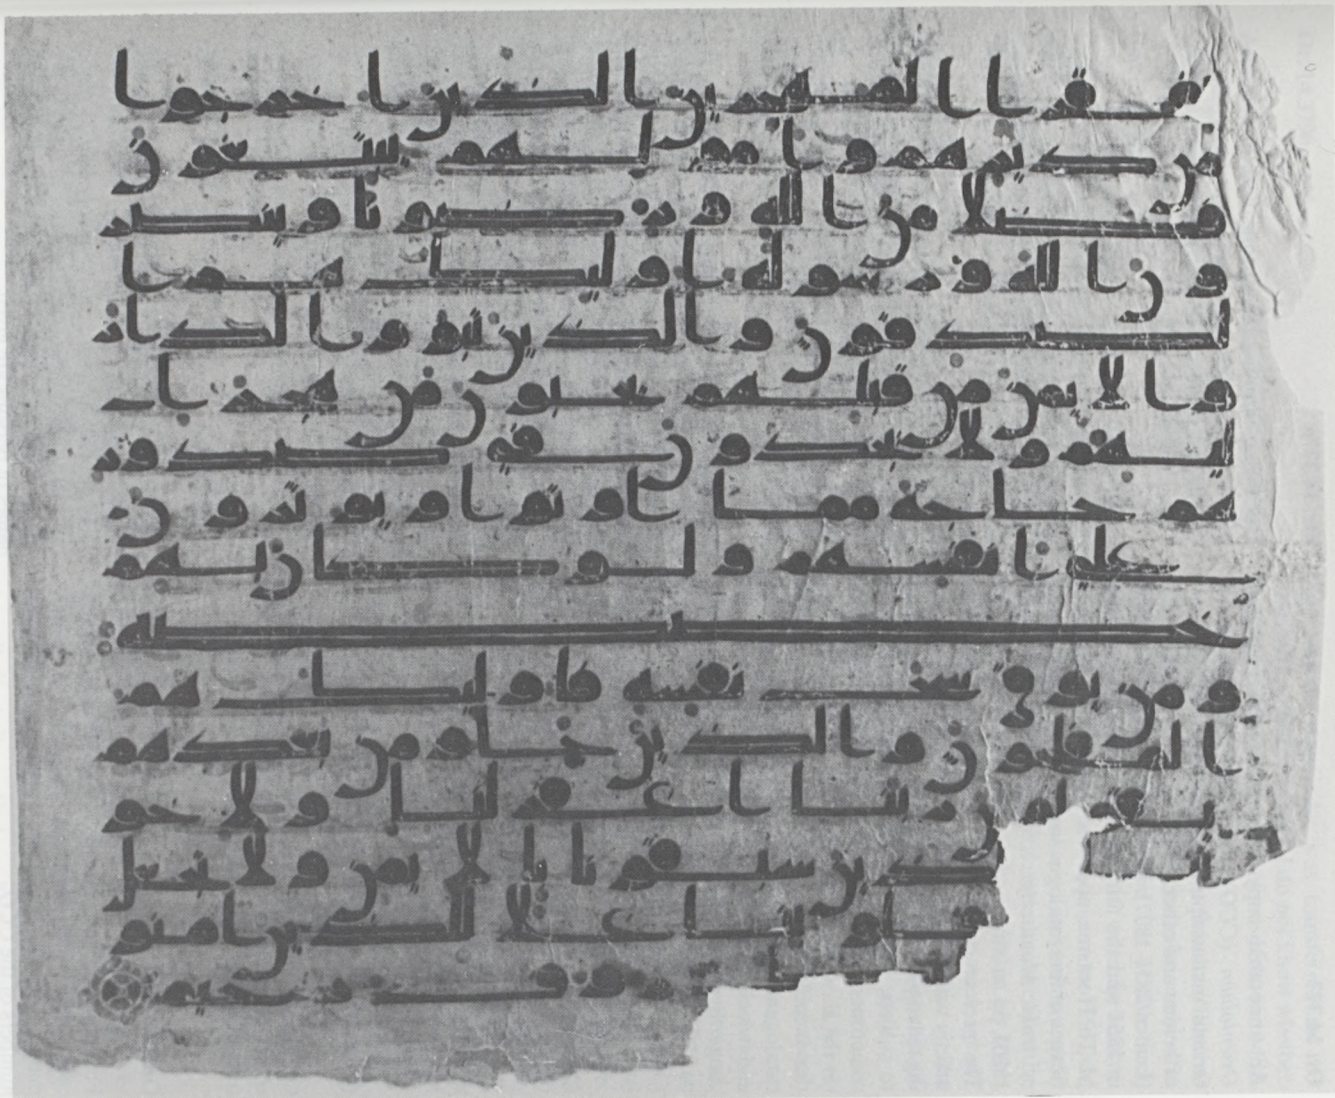 للفقرا المهجرين الذين اخرجوا
من ديرهم و امولهم يبتغون
فضلا من الله و رضونا و ينصر
ون الله و رسوله اوليك هم ا
لصدقون و الذين تبوو الدار
و الايمن من قبلهم يحبون من هجر ا
ليهم و لا يجدون في صدور
هم حاجة مما اوتوا و يوثرون
على انفسهم و لو كان بهم
خصاصة
و من يوق شح نفسه فاوليك هم
المفلحون و الذين جاو من بعدهم
يقولون ربنا اغفر لنا و لاخو
الذين سبقونا بالايمن و لا تجعل
قلوبنا غلا للذين امنو
روف رحيم